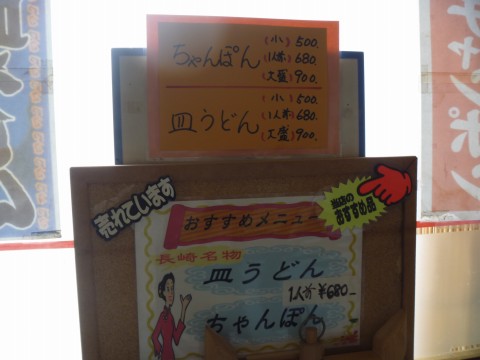 ちゃんぽん
(小) 500.
(1人前) 680.
(大盛) 900.
皿うどん
(小) 500.
(1人前) 680.
(大盛) 900.
売れています
おすすめ品
おすすめメニュー
長崎名物
皿うどん
1人前 ¥680-
ちゃんぽん
チャンポン